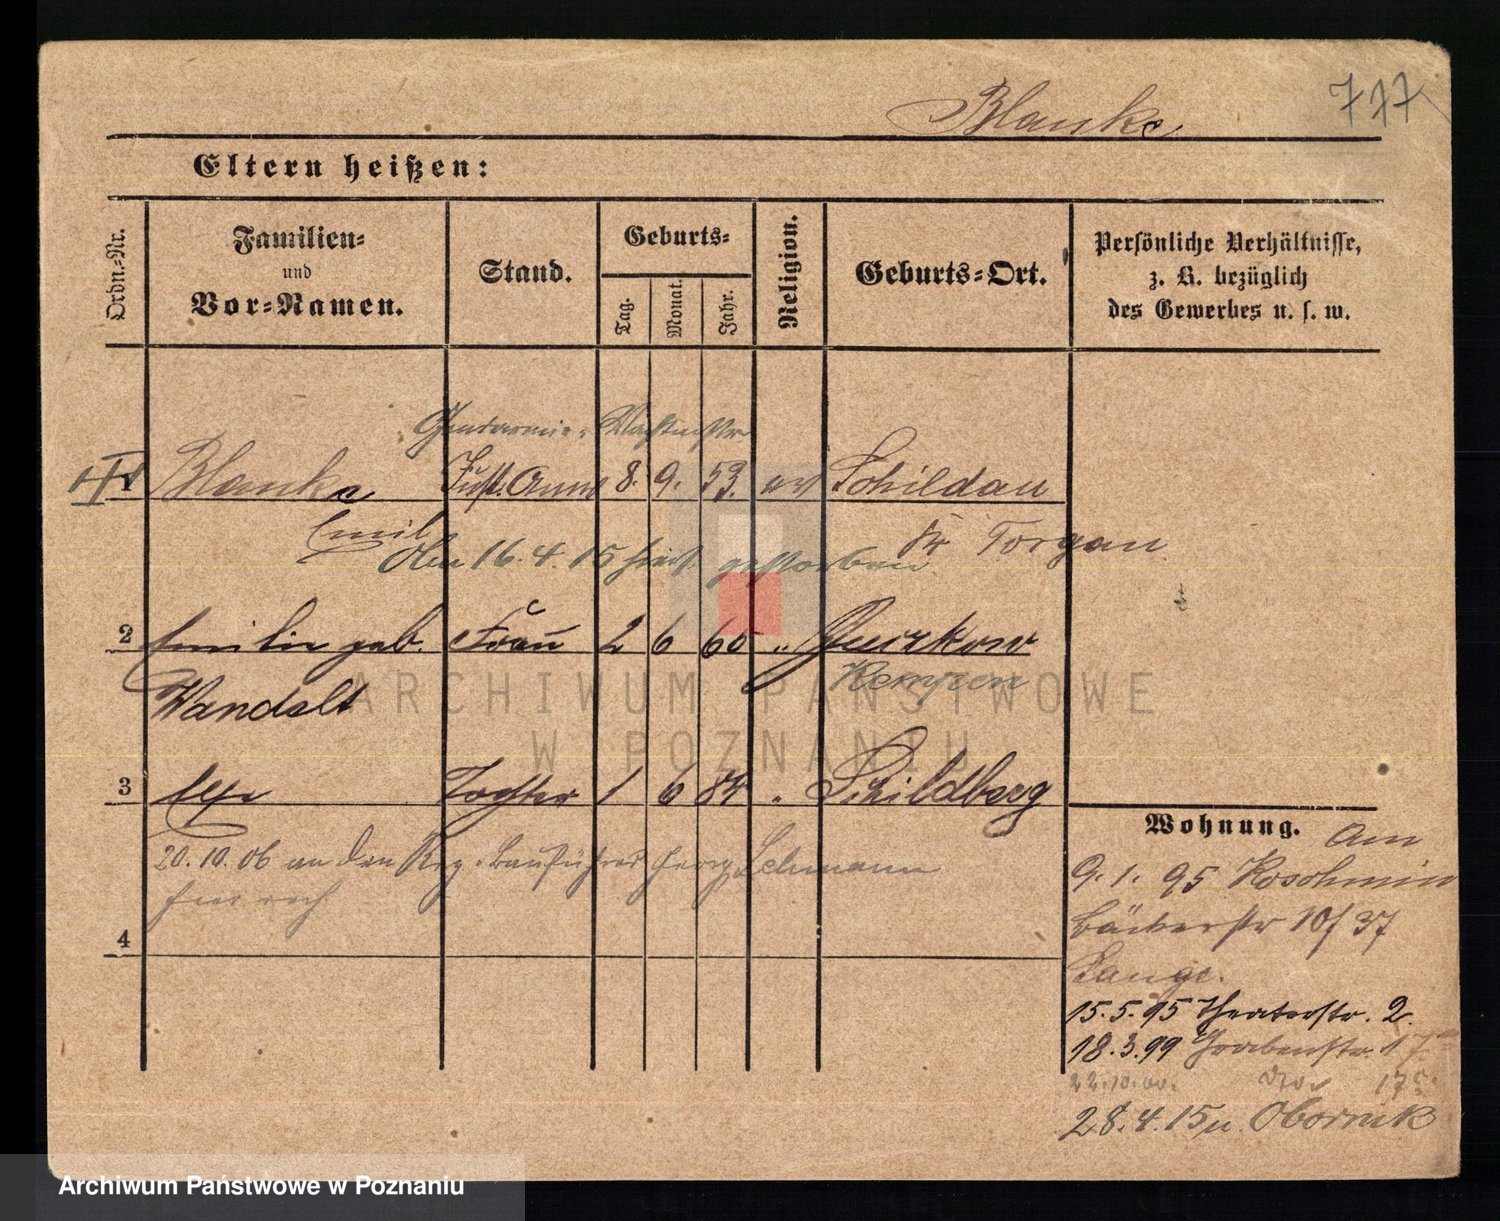 Blanke
777
Eltern heißen:
Ordn.-Nr.
Familien-
und
Vor-Namen.
Stand.
Geburts-
Tag.
Monat.
Jahr.
Religion.
Geburts-Ort.
Persönliche Verhältnisse,
z. B. bezüglich
des Gewerbes u. s. w.
Gendarmie- Wachtmstr
Blanke 8. 9. 53. ev Schildau
Emil Kr Torgau
16. 4. 15 hier gestorben
2 Emilie geb. Frau 2 6 60 "
Wandelt Kempen
3 Else Tochter 1 6 84 " Schildberg
20.10.06 an den Reg. Bauführer Georg Lehmann
4
Wohnung. Am
9. 1. 95 Koschmin
Bäckerstr 10/37
Lange.
15.5.95 Theaterstr. 2.
18.3.99 Grabenstr. 17
22.10.00. do. 17
28.4.15 n. Obornik
ARCHIWUM PAŃSTWOWE
W POZNANIU
Archiwum Państwowe w Poznaniu